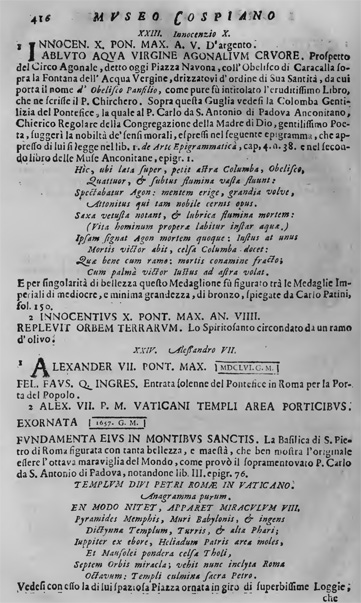 416 MVSEO COSPIANO
XXIII. Innocenzio X.
1 INNOCEN. X. PON. MAX. A. V. D'argento.
ABLVTO AQVA VIRGINE AGONALIVM CRVORE. Prospetto
del Circo Agonale, detto oggi Piazza Navona, coll'Obelisco di Caracalla so-
pra la Fontana dell'Acqua Vergine, drizzatovi d'ordine di Sua Santità, da cui
porta il nome d'Obelisco Panfilio, come pure fù intitolato l'eruditissimo Libro,
che ne scrisse il P. Chirchero. Sopra questa Guglia vedesi la Colomba Genti-
lizia del Pontefice, la quale al P. Carlo da S. Antonio di Padova Anconitano,
Chierico Regolare della Congregazione della Madre di Dio, gentilissimo Poe-
ta, suggerì la nobiltà de' sensi morali, espressi nel seguente epigramma, che ap-
presso di lui si legge nel lib. 1. de Arte Epigrammatica, cap. 4. n. 38. e nel secon-
do libro delle Muse Anconitane, epigr. 1.
Hic, ubi lata super, petit astra Columba, Obelisco,
Quattuor, & subtus flumina vasta fluunt:
Spectabatur Agon: mentem erige, grandia volve,
Attonitus qui tam nobile cernis opus.
Saxa vetusta notant, & lubrica flumina mortem:
(Vita hominum properæ labitur instar aquæ.)
Ipsam signat Agon mortem quoque: Iustus at unus
Mortis victor abit, celsa Columba docet:
Quæ bene cum ramo: mortis conamine fracto;
Cum palmâ victor Iustus ad astra volat.
E per singolarità di bellezza questo Medaglione fù figurato trà le Medaglie Im-
periali di mediocre, e minima grandezza, di bronzo, spiegate da Carlo Patini,
fol. 150.
2 INNOCENTIVS X. PONT. MAX. AN. VIIII.
REPLEVIT ORBEM TERRARVM. Lo Spiritosanto circondato da un ramo
d'olivo.
XXIV. Alessandro VII.
1 ALEXANDER VII. PONT. MAX. MDCLVI. G. M.
FEL. FAVS. Q. INGRES. Entrata solenne del Pontefice in Roma per la Por-
ta del Popolo.
2 ALEX. VII. P. M. VATICANI TEMPLI AREA PORTICIBVS.
EXORNATA 1657. G. M.
FVNDAMENTA EIVS IN MONTIBVS SANCTIS. La Basilica di S. Pie-
tro di Roma figurata con tanta bellezza, e maestà, che ben mostra l'originale
essere l'ottava maraviglia del Mondo, come provò il sopramentovato P. Carlo
da S. Antonio di Padova, notandone lib. III. epigr. 76.
TEMPLVM DIVI PETRI ROMÆ IN VATICANO.
Anagramma purum.
EN MODO NITET, APPARET MIRACVLVM VIII.
Pyramides Memphis, Muri Babylonis, & ingens
Dictynnæ Templum, Turris, & alta Phari;
Iuppiter ex ebore, Heliadum Patris area moles,
Et Mausolei pondera celsa Tholi,
Septem Orbis miracla; vehit nunc inclyta Roma
Octavum: Templi culmina sacra Petro.
Vedesi con esso la di lui spaziosa Piazza ornata in giro di superbissime Loggie;
che